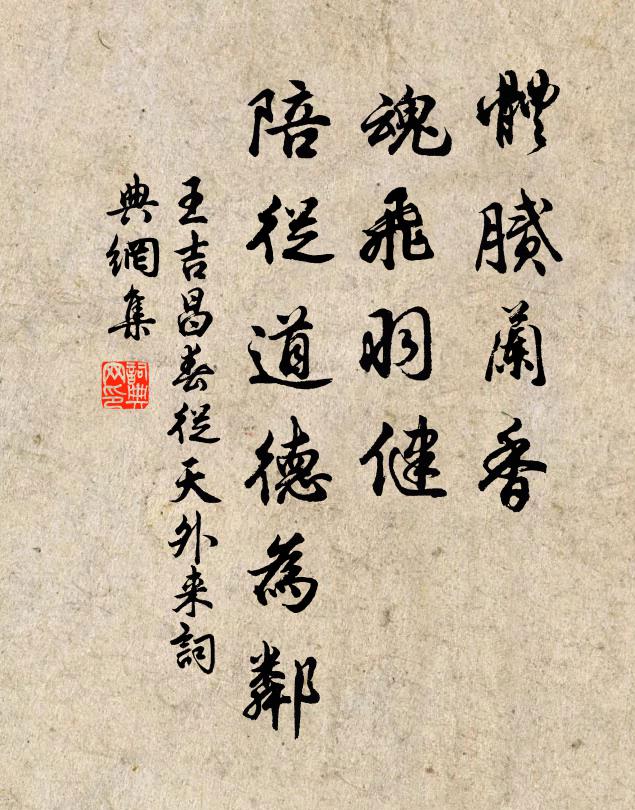 體膩蘭香
魂飛羽健
陪從道德為鄰
王吉昌春從天外来詞
典網集
詞典
网印